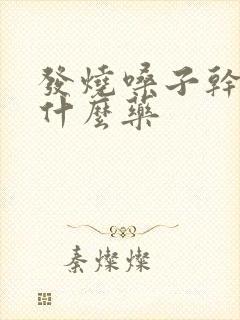 發燒嗓子幹
什麼藥
秦燦燦